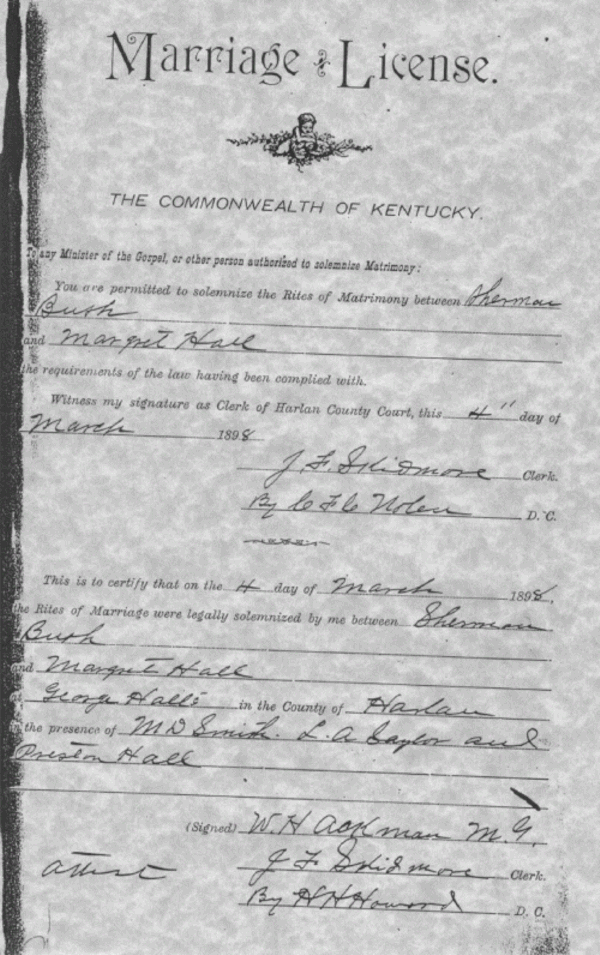 Marriage License.
THE COMMONWEALTH OF KENTUCKY.
To any Minister of the Gospel, or other person authorized to solemnize Matrimony:
You are permitted to solemnize the Rites of Matrimony between Sherman
Bush
and Margret Hall
the requirements of the law having been complied with.
Witness my signature as Clerk of Harlan County Court, this 4" day of
March 1898
J. F. Skidmore Clerk.
By C F C Nolen D. C.
This is to certify that on the 4 day of March 1898,
the Rites of Marriage were legally solemnized by me between Sherman
Bush
and Margret Hall
at George Hall's in the County of Harlan
in the presence of M D Smith. L. A Saylor and
Preston Hall
(Signed) W. H Ackman M. G.
J F Skidmore Clerk.
Attest By H H Howard D. C.